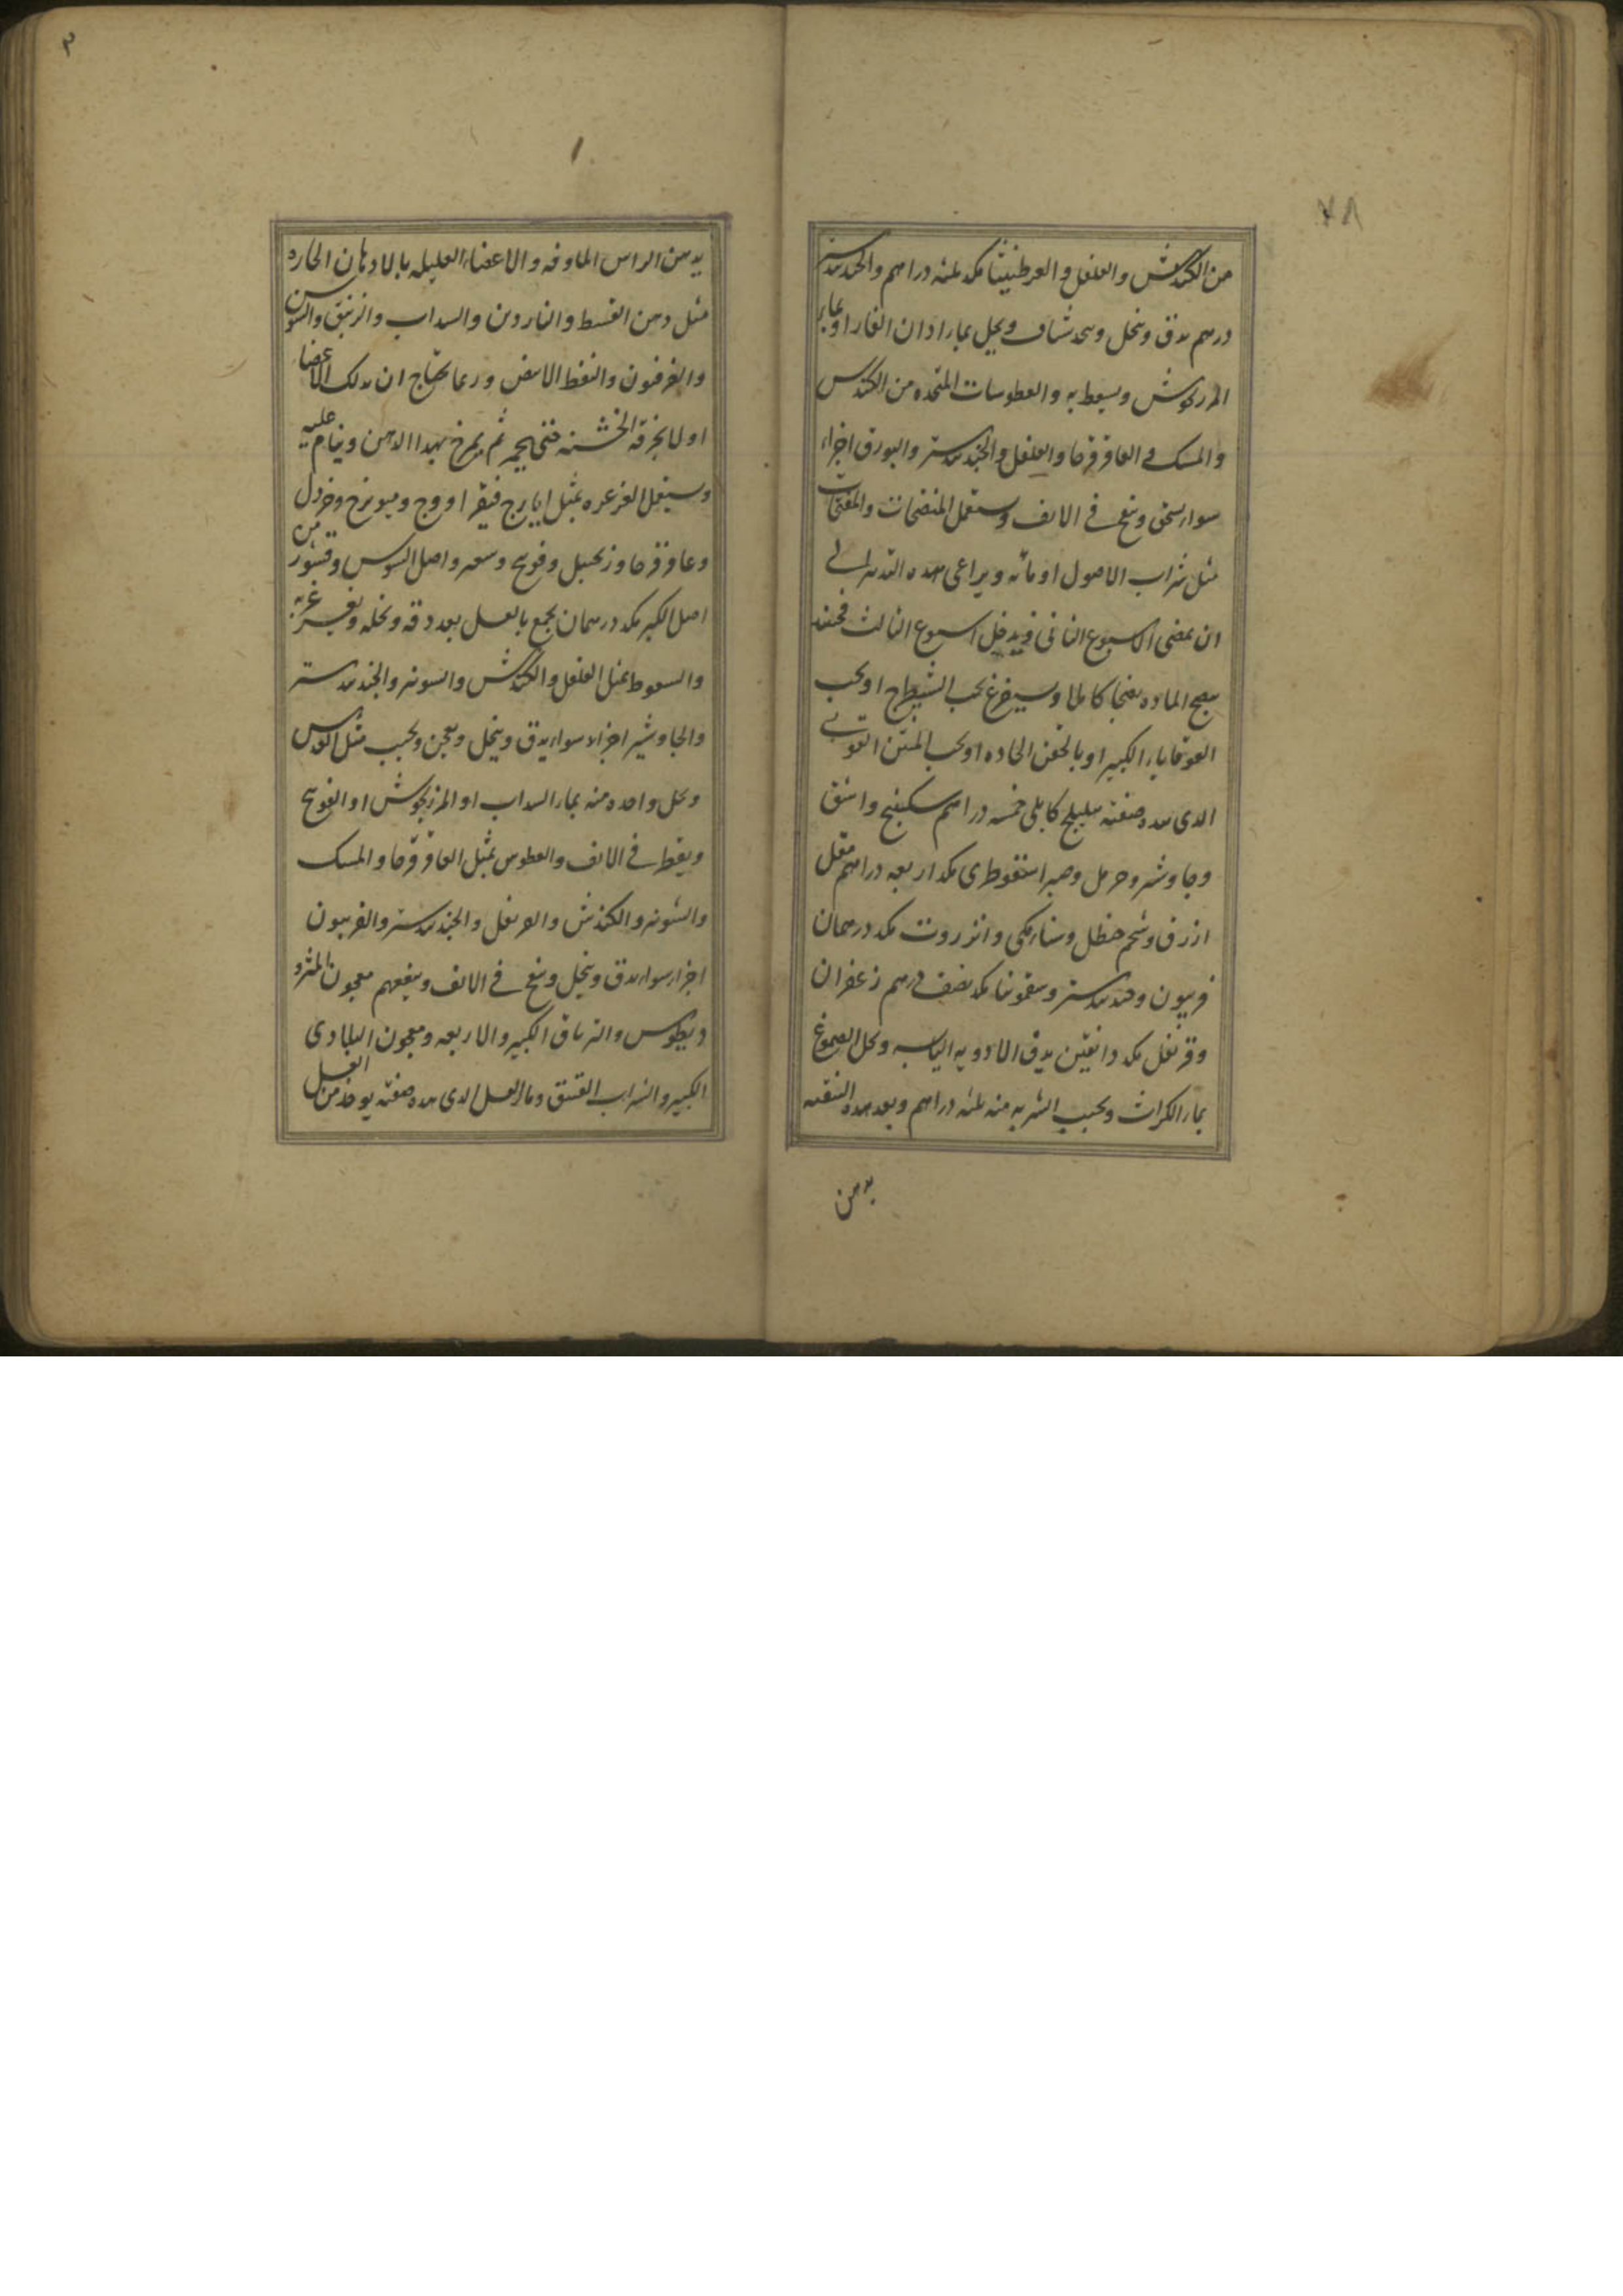 ٧٨
من الكندش والفلفل والعرطنيثا مكد ثلثه دراهم والجندبيدستر
درهم يدق وينخل ويتخذ شياف ويحل بماء اذان الفار او بماء
المرزنجوش ويسعط به والعطوسات المتخذه من الكندس
والمسك والعاقرقرحا والفلفل والجندبيدستر والبورق اجزاء
سواء يسحق وينفخ في الانف ويستعمل المنضجات والمفتحات
مثل شراب الاصول او مائه ويراعى هذه التدبير الى
ان يمضى الاسبوع الثانى ويدخل اسبوع الثالث فحينئذ
ينضج الماده نضجا كاملا ويستفرغ بحب الشيطرج او بحب
القوقايا الكبير او بالحقن الحاده او بحب المنتن القوى
الذى هذه صفته هليلج كابلى خمسه دراهم سكبينج واشق
وجاوشير وحرمل وصبر اسقوطرى مكد اربعه دراهم مقل
ازرق وشحم حنظل وسنا مكى وانزروت مكد درهمان
فربيون وجندبيدستر وسقمونيا مكد نصف درهم زعفران
وقرنفل مكد دانقين يدق الادويه اليابسه ويحل الصموغ
بماء الكراث ويحبب الشربه منه ثلثه دراهم وبعد هذه التنقيه
يدهن
٣
١
يدهن الراس الماوفه والاعضاء العليله بالادهان الحاره
مثل دهن القسط والناردين والسداب والزنبق والسوسن
والفرفيون والنفط الابيض وربما يحتاج ان يدلك الاعضا
اولا بخرقه الخشنه حتى يحمر ثم يمرخ بهذا الدهن وينام عليه
ويستعمل الغرغره بمثل ايارج فيقرا ووج وميويزج وخردل
وعاقرقرحا وزنجبيل وفوتنج وسعتر واصل السوس وقشور من
اصل الكبر مكد درهمان يجمع بالعسل بعد دقه ونخله ويغرغر به
والسعوط بمثل الفلفل والكندش والشونيز والجندبيدستر
والجاوشير اجزاء سواء يدق وينخل ويعجن ويحبب مثل العدس
ويحل واحده منه بماء السداب او المرزنجوش او الفوتنج
ويقطر في الانف والعطوس بمثل العاقرقرحا والمسك
والشونيز والكندش والقرنفل والجندبيدستر والفربيون
اجزاء سواء يدق وينخل وينفخ في الانف وينفعهم معجون المثرو
ديطوس والترياق الكبير والاربعه ومعجون البلادرى
الكبير والشراب العتيق وماء العسل الذى هذه صفته يوخذ من العسل